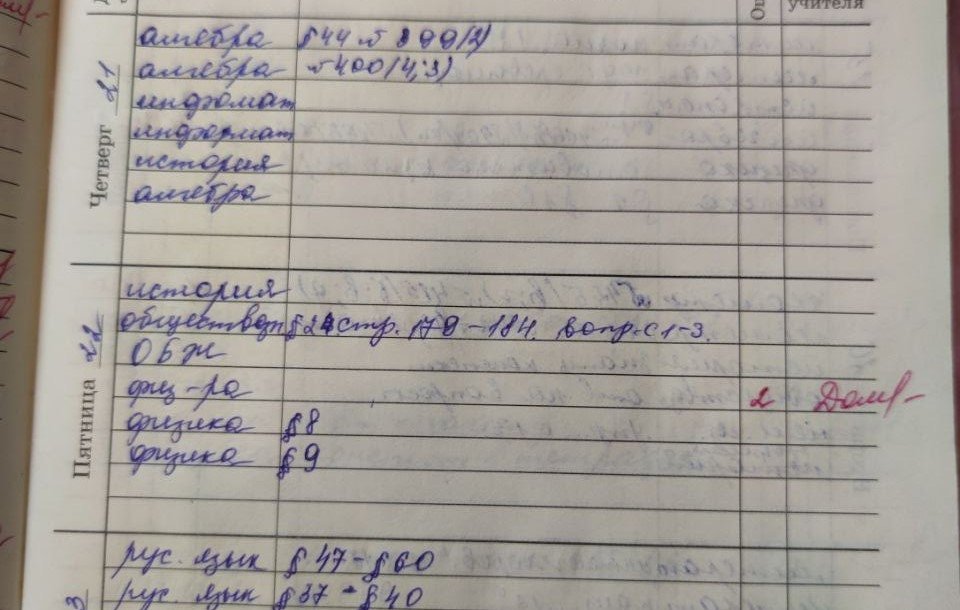 Оц
учителя
Четверг 21
алгебра §44 № 399(2)
алгебра № 400(4;3)
информат
информат
история
алгебра
Пятница 22
история
обществозн §21 стр. 179-184. вопр-с 1-3.
ОБЖ
физ-ра 2
физика §8
физика §9
3
рус. язык §47-§60
рус. язык §37-§40